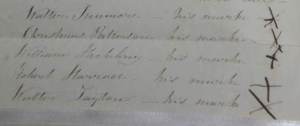 Walter Simmons his mark X
Christmas Patterson his mark X
William his mark X
Robert his mark X
Walter Taylor his mark X